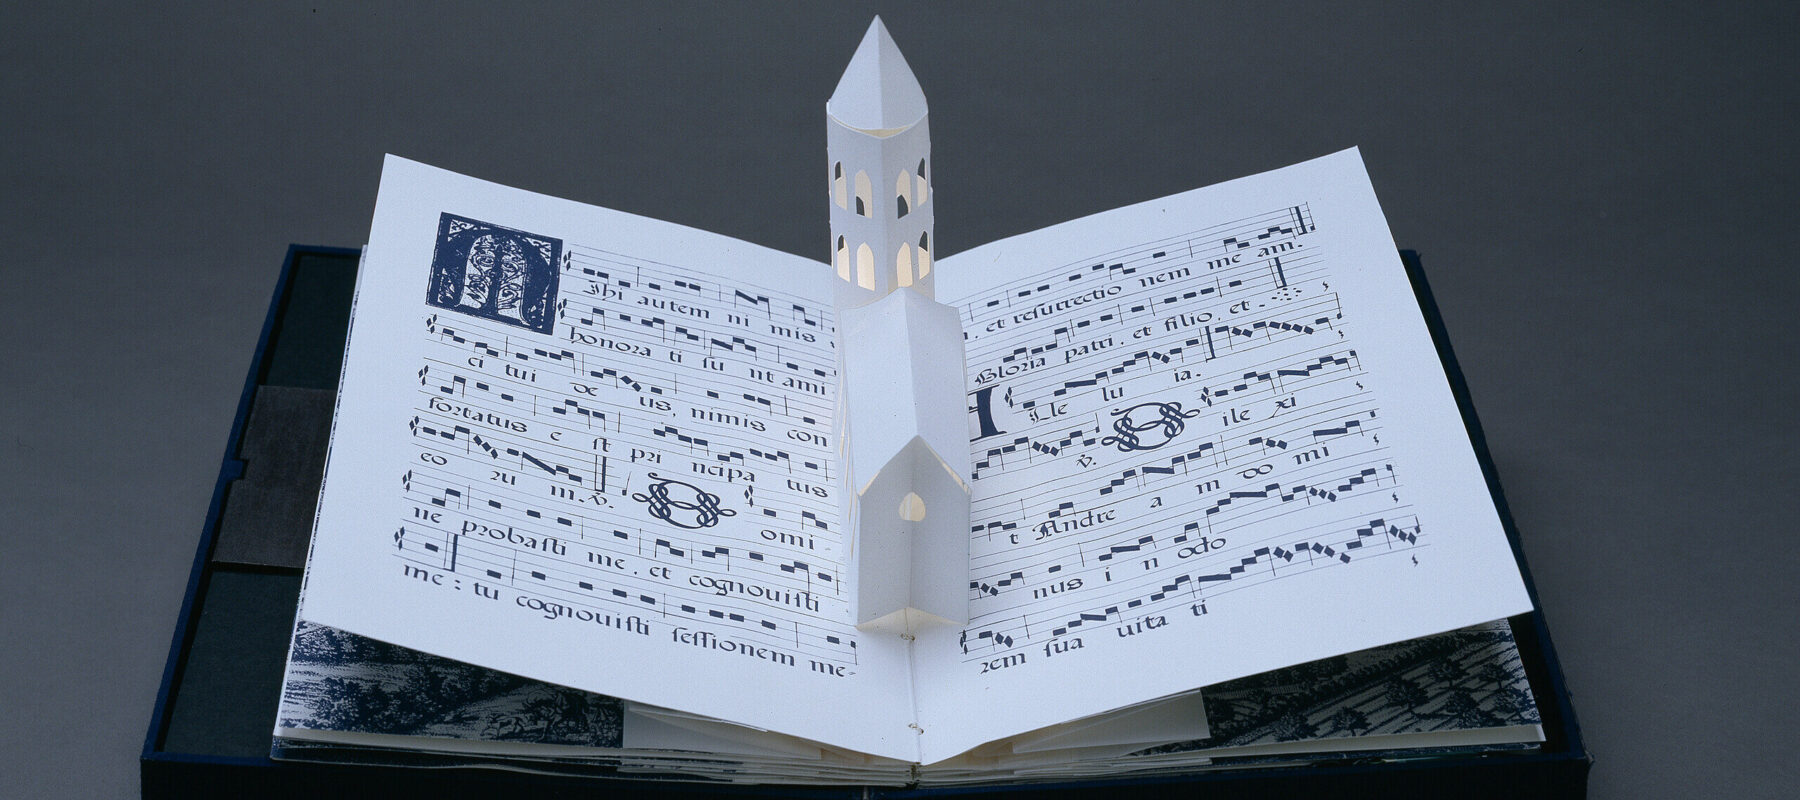 Mihi autem ni mis
honora ti ſu nt ami
ci tui de us, nimis con
fortatus e ſt pri ncipa tus
eo ru m. ℣. D omi -
ne probaſti me, et cognouiſti
me : tu cognouiſti ſeſſionem me-
, et reſurrectio nem me am.
Gloria patri, et filio, et
A Lle lu ia.
℣. D ile xi
t Andre a m do mi
nus i n odo
rem ſua uita ti